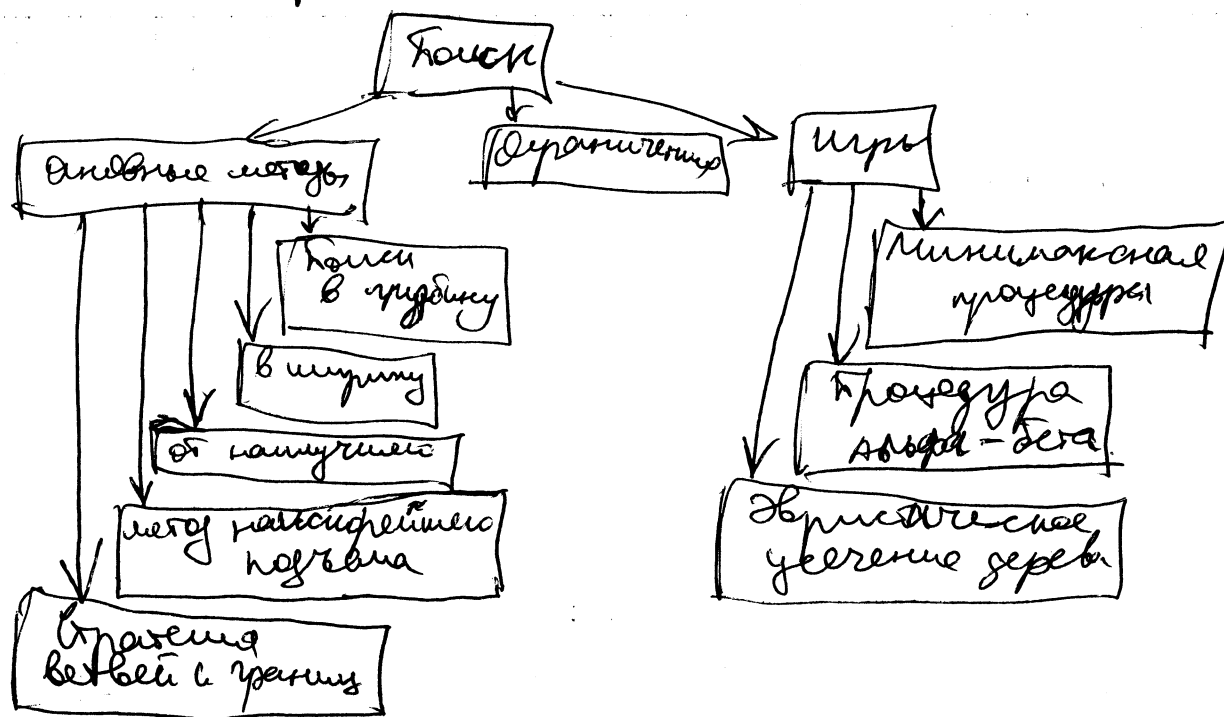 Поиск
Основные методы
Ограничения
Игры
Поиск
в глубину
в ширину
от наилучшего
метод наискорейшего
подъёма
Стратегия
ветвей и границ
Минимаксная
процедура
Процедура
альфа-бета
Эвристическое
усечение дерева